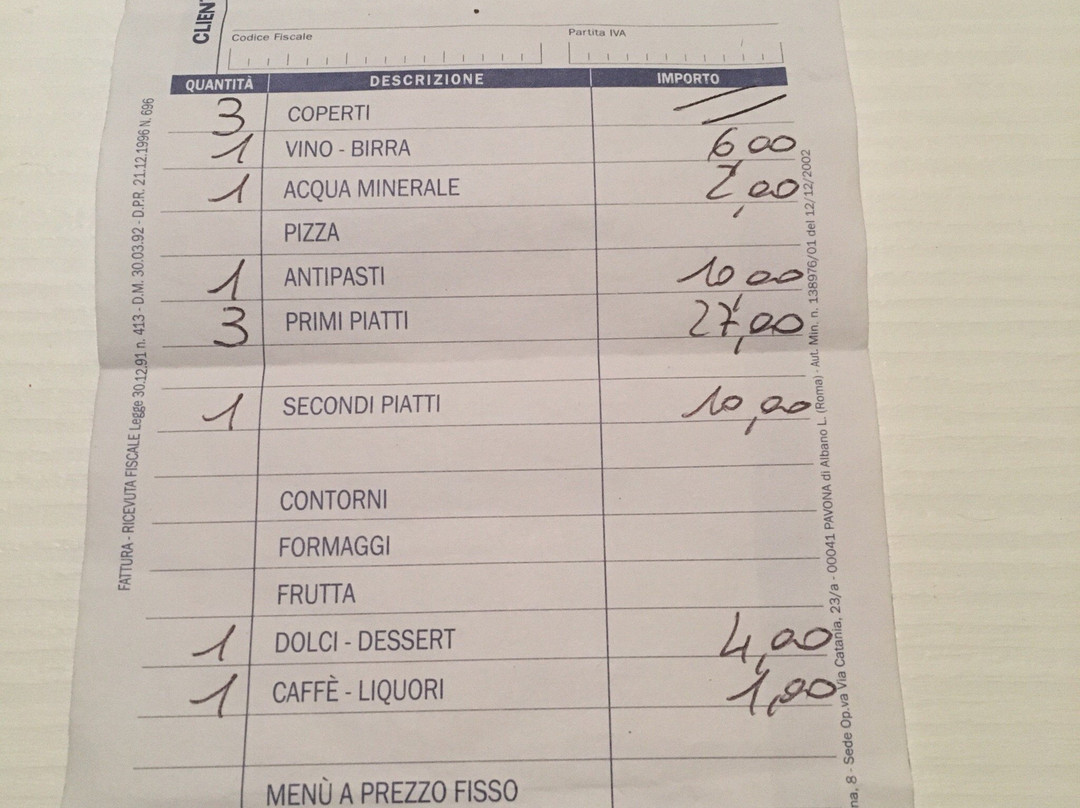 CLIEN
Codice Fiscale Partita IVA
QUANTITÀ DESCRIZIONE IMPORTO
3 COPERTI
1 VINO - BIRRA 6,00
1 ACQUA MINERALE 2,00
PIZZA
1 ANTIPASTI 10,00
3 PRIMI PIATTI 27,00
1 SECONDI PIATTI 10,00
CONTORNI
FORMAGGI
FRUTTA
1 DOLCI - DESSERT 4,00
1 CAFFÈ - LIQUORI 1,00
MENÙ A PREZZO FISSO
FATTURA - RICEVUTA FISCALE Legge 30.12.91 n. 413 - D.M. 30.03.92 - D.P.R. 21.12.1996 N. 696
na, 8 - Sede Op.va Via Catania, 23/a - 00041 PAVONA di Albano L. (Roma) - Aut. Min. n. 138976/01 del 12/12/2002